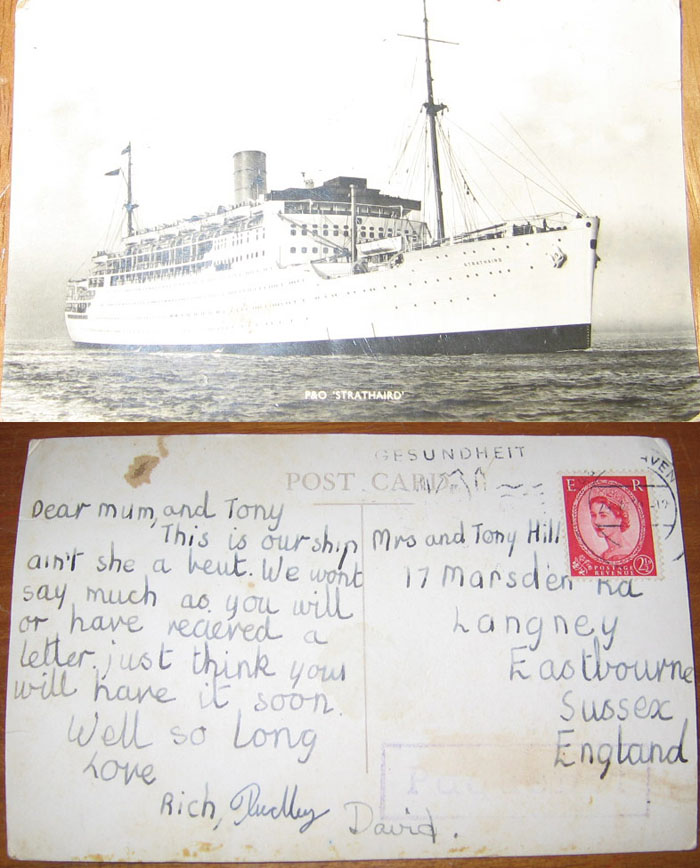 STRATHAIRD
P&O 'STRATHAIRD'
GESUNDHEIT
POST CARD
Dear mum, and Tony
This is our ship
ain't she a beut. We wont
say much as you will
or have recieved a
letter. just think you
will have it soon.
Well so long
Love
Rich, Dudley
David.
E R
POSTAGE
REVENUE
2½
Mrs and Tony Hill
17 Marsden Rd
Langney
Eastbourne
Sussex
England